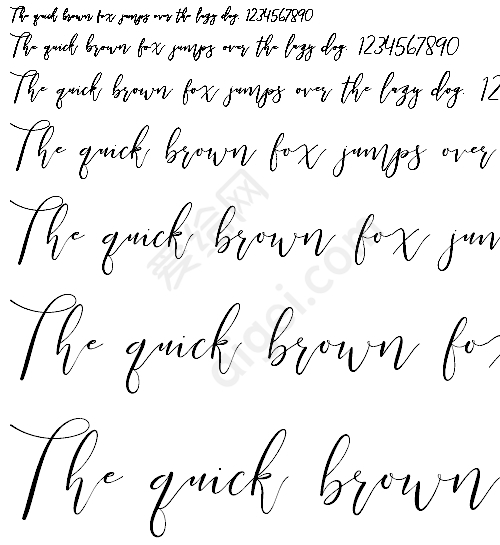 The quick brown fox jumps over the lazy dog. 1234567890
The quick brown fox jumps over the lazy dog. 1234567890
The quick brown fox jumps over the lazy dog. 12
The quick brown fox jumps over
The quick brown fox jum
The quick brown fo
The quick brown
爱给网
aigei.com